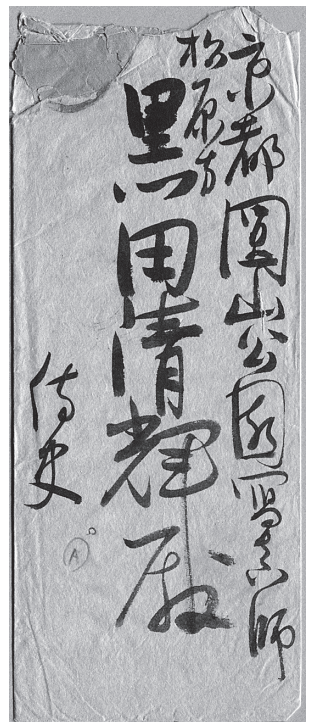 京都圓山公園寫真師
松原方
黒田清輝殿
侍史
A